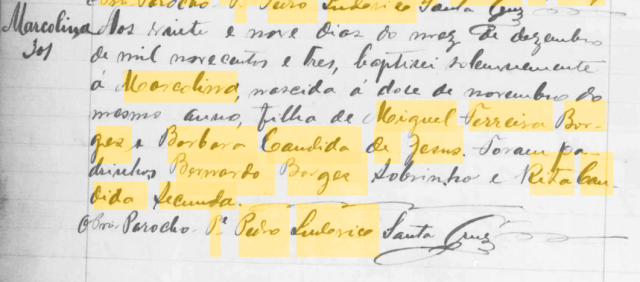 O Pro. Parocho Pe. Pedro Ludovico Santa Cruz
Marcolina Aos vinte e nove dias do mez de dezembro
301 de mil novecentos e tres, baptisei solemnemente
á Marcolina, nascida á doze de novembro do
mesmo anno, filha de Miguel Ferreira Bor-
ges e Barbara Candida de Jesus. Foram pa-
drinhos Bernardo Borges Sobrinho e Rita Can-
dida Secunda.
Parocho Pe. Pedro Ludovico Santa Cruz